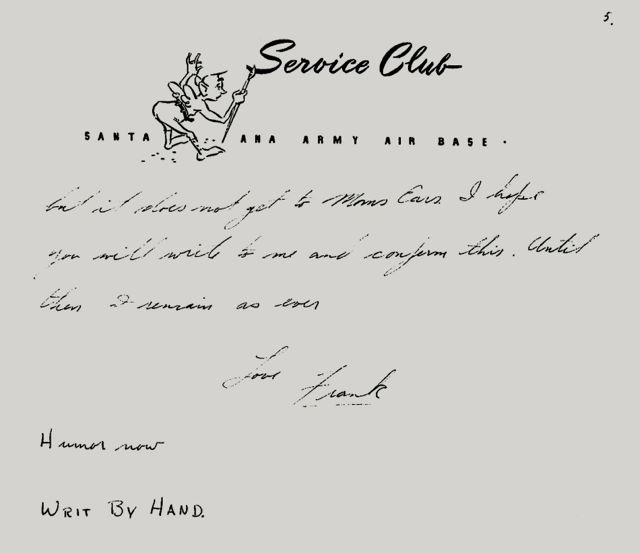 5.
Service Club
SANTA ANA ARMY AIR BASE.
but it does not get to Moms Ears. I hope
you will write to me and confirm this. Until
then I remain as ever
Love Frank
Humor now
WRIT BY HAND.